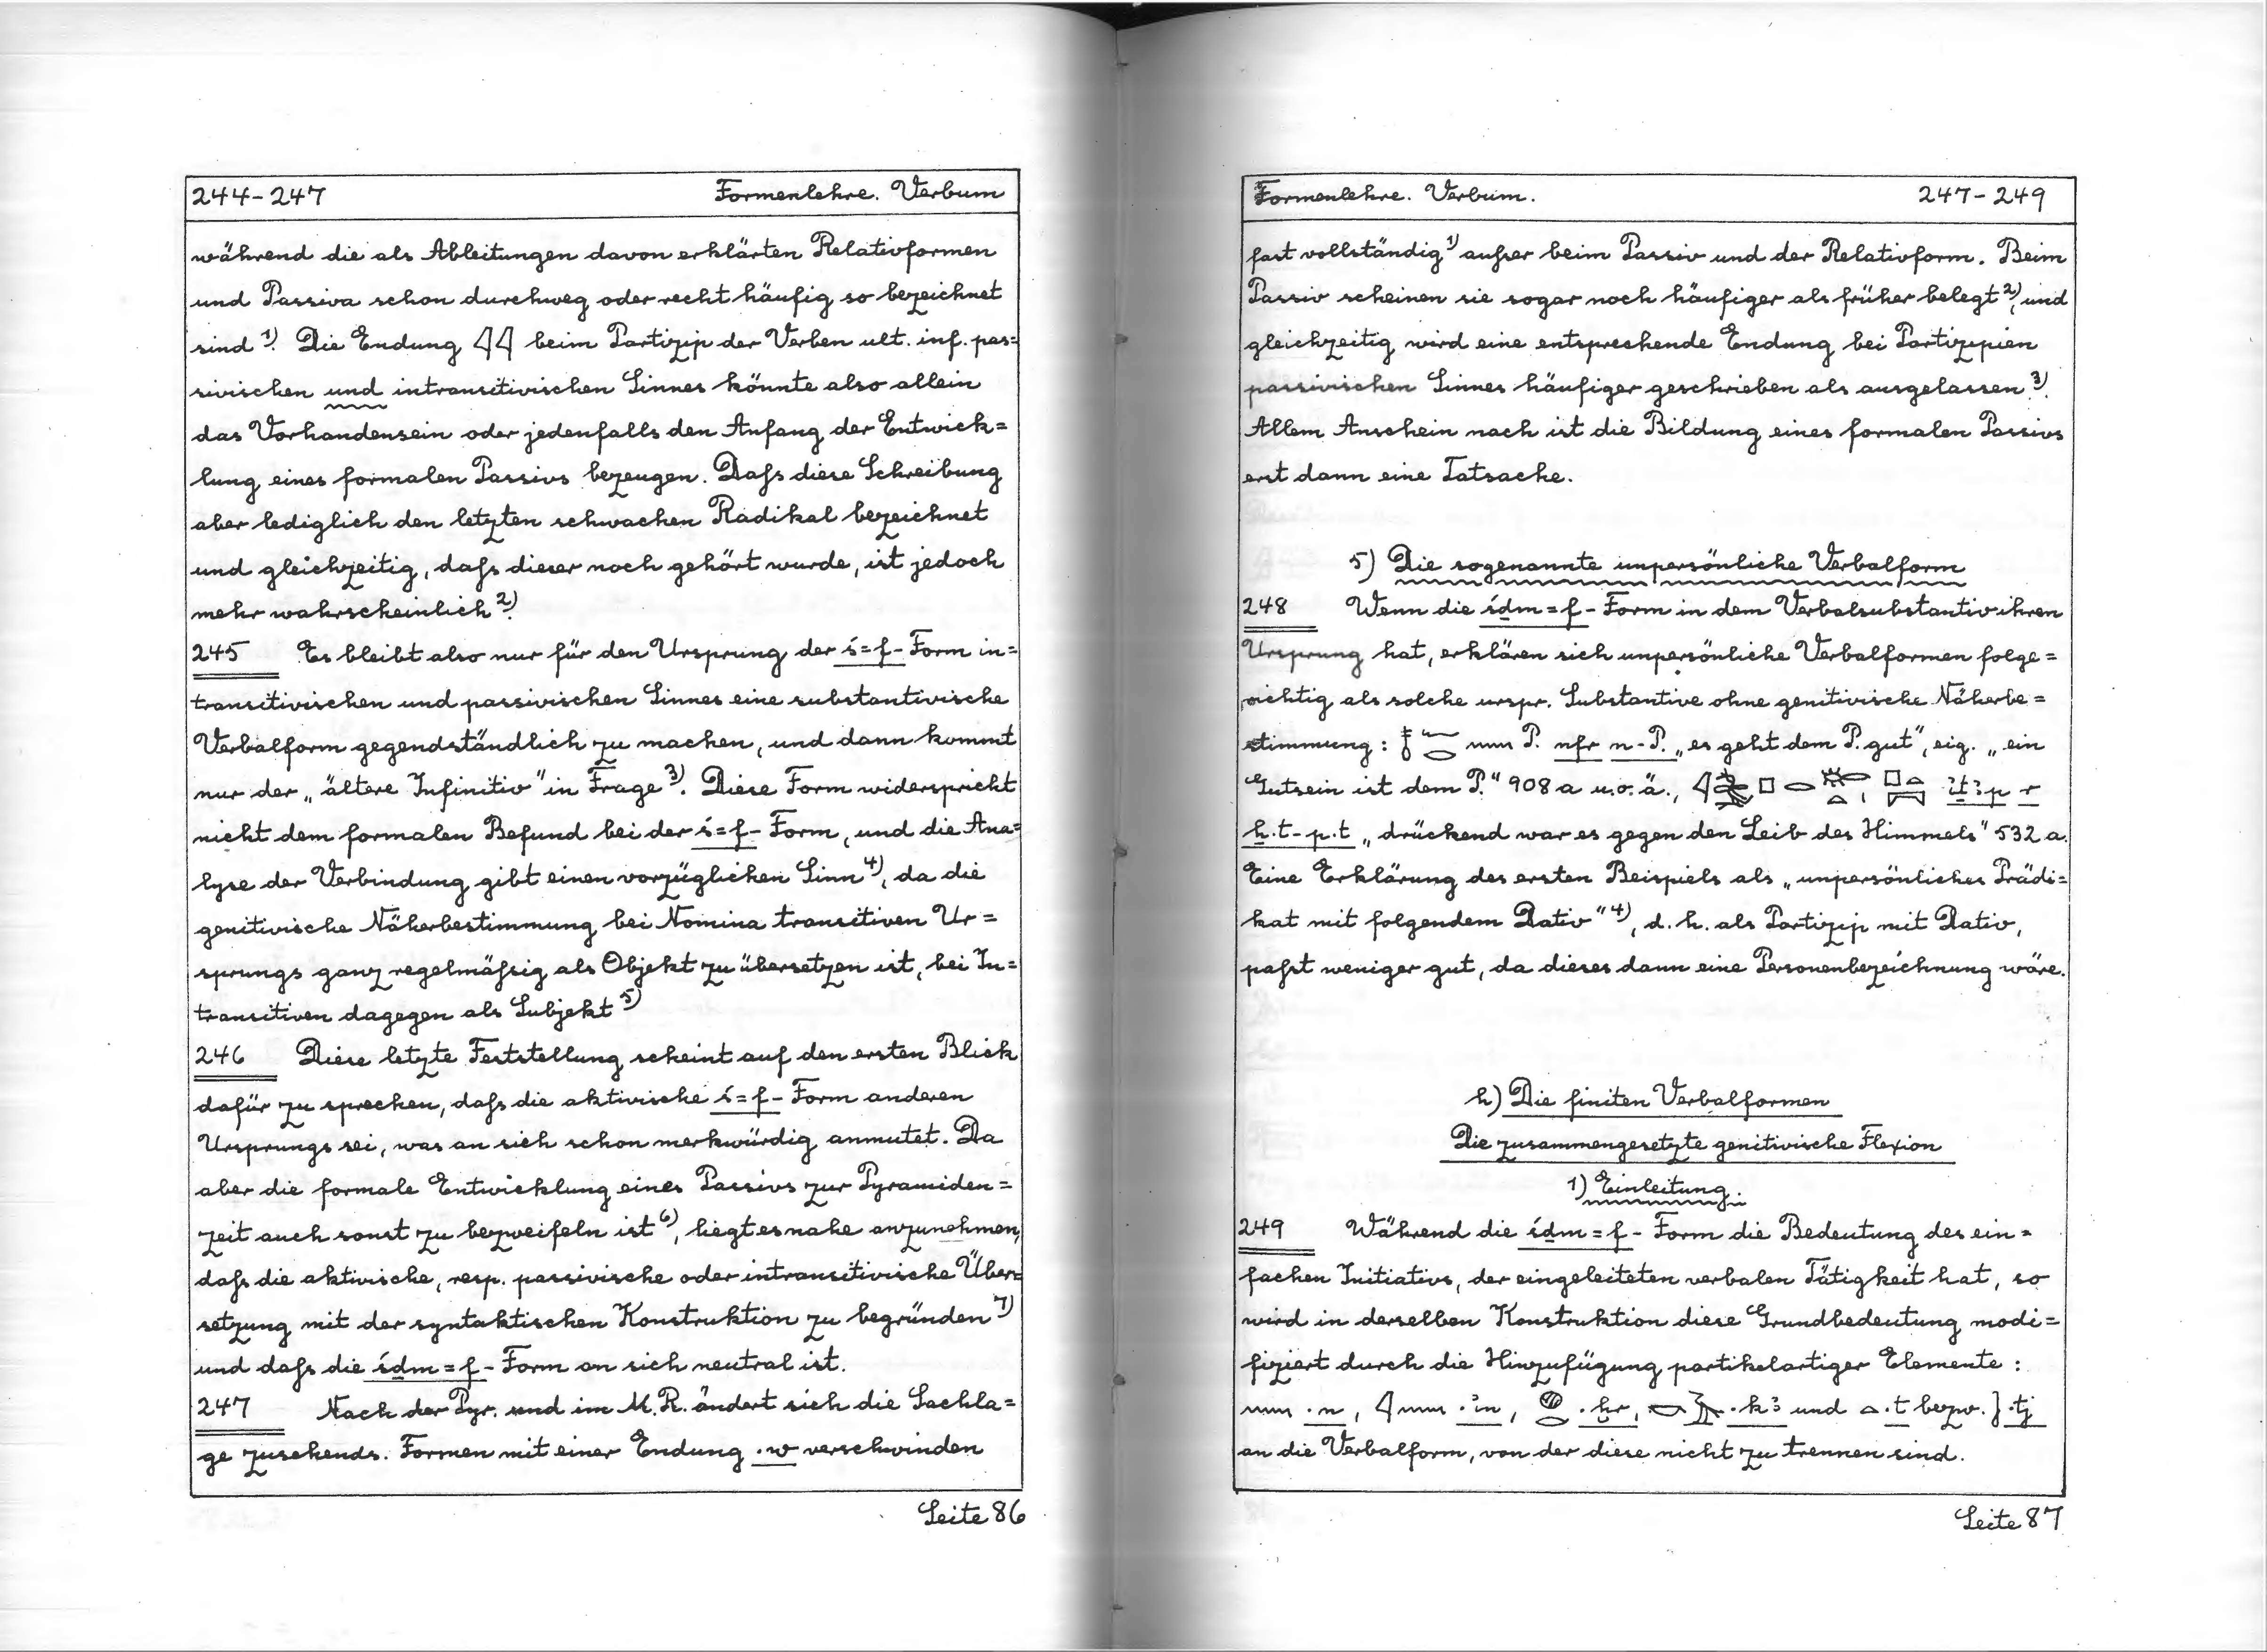 244-247 Formenlehre. Verbum
während die als Ableitungen davon erklärten Relativformen
und Passiva schon durchweg oder recht häufig so bezeichnet
sind 1). Die Endung 𓇋𓇋 beim Partizip der Verben ult. inf. pas=
sivischen und intransitivischen Sinnes könnte also allein
das Vorhandensein oder jedenfalls den Anfang der Entwick=
lung eines formalen Passivs bezeugen. Daſs diese Schreibung
aber lediglich den letzten schwachen Radikal bezeichnet
und gleichzeitig, daſs dieser noch gehört wurde, ist jedoch
mehr wahrscheinlich 2).
245 Es bleibt also nur für den Ursprung der ś=f-Form in=
transitivischen und passivischen Sinnes eine substantivische
Verbalform gegendständlich zu machen, und dann kommt
nur der „ältere Infinitiv" in Frage 3). Diese Form widerspricht
nicht dem formalen Befund bei der ś=f-Form, und die Ana=
lyse der Verbindung gibt einen vorzüglichen Sinn 4), da die
genitivische Näherbestimmung bei Nomina transitiven Ur=
sprungs ganz regelmäſsig als Objekt zu übersetzen ist, bei In=
transitiven dagegen als Subjekt 5)
246 Diese letzte Feststellung scheint auf den ersten Blick
dafür zu sprechen, daſs die aktivische ś=f-Form anderen
Ursprungs sei, was an sich schon merkwürdig anmutet. Da
aber die formale Entwicklung eines Passivs zur Pyramiden=
zeit auch sonst zu bezweifeln ist 6), liegt es nahe anzunehmen,
daſs die aktivische, resp. passivische oder intransitivische Über=
setzung mit der syntaktischen Konstruktion zu begründen 7)
und daſs die śḏm=f-Form an sich neutral ist.
247 Nach der Pyr. und im M.R. ändert sich die Sachla=
ge zusehends. Formen mit einer Endung .w verschwinden
Seite 86
Formenlehre. Verbum. 247-249
fast vollständig 1) auſser beim Passiv und der Relativform. Beim
Passiv scheinen sie sogar noch häufiger als früher belegt 2), und
gleichzeitig wird eine entsprechende Endung bei Partizipien
passivischen Sinnes häufiger geschrieben als ausgelassen 3).
Allem Anschein nach ist die Bildung eines formalen Passivs
erst dann eine Tatsache.
5) Die sogenannte unpersönliche Verbalform
248 Wenn die śḏm=f-Form in dem Verbalsubstantiv ihren
Ursprung hat, erklären sich unpersönliche Verbalformen folge=
richtig als solche urspr. Substantive ohne genitivische Näherbe=
stimmung: 𓄤𓆑𓂋 𓈖 P. nfr n-P. „es geht dem P. gut", eig. „ein
Gutsein ist dem P." 908 a u.o.ä., ꞽṯꜣp r
ẖ.t-p.t „drückend war es gegen den Leib des Himmels" 532 a.
Eine Erklärung des ersten Beispiels als „unpersönliches Prädi=
kat mit folgendem Dativ" 4), d.h. als Partizip mit Dativ,
paſst weniger gut, da dieses dann eine Personenbezeichnung wäre.
h) Die finiten Verbalformen
Die zusammengesetzte genitivische Flexion
1) Einleitung.
249 Während die śḏm=f-Form die Bedeutung des ein=
fachen Initiativs, der eingeleiteten verbalen Tätigkeit hat, so
wird in derselben Konstruktion diese Grundbedeutung modi=
fiziert durch die Hinzufügung partikelartiger Elemente:
𓈖 .n, 𓇋𓈖 .ꞽn, 𓐍𓂋 .ḫr, 𓎡𓄿 .kꜣ und 𓏏 .t bezw. .tj
an die Verbalform, von der diese nicht zu trennen sind.
Seite 87